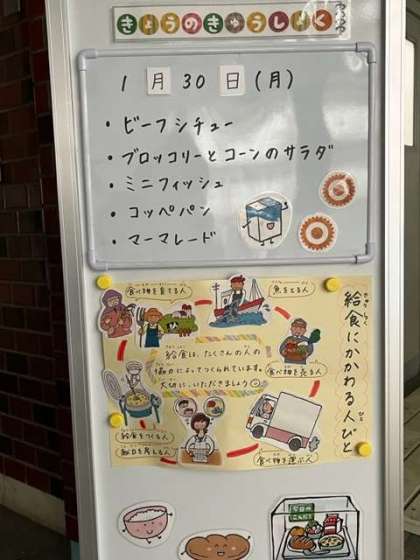 きょうのきゅうしょく
1月30日(月)
・ビーフシチュー
・ブロッコリーとコーンのサラダ
・ミニフィッシュ
・コッペパン
・マーマレード
給食にかかわる人びと
食べ物を育てる人
魚をとる人
給食は、たくさんの人の
協力によってつくられています。
大切に、いただきましょう
食べ物を売る人
給食をつくる人
献立を考える人
食べ物を運ぶ人